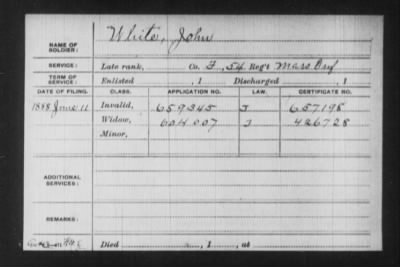 White, John
NAME OF SOLDIER:
SERVICE: Late rank, Co. F, 54 Reg't Mass Inf
TERM OF SERVICE: Enlisted , 1 Discharged , 1
DATE OF FILING. CLASS. APPLICATION NO. LAW. CERTIFICATE NO.
1888 June 11 Invalid, 659345 J 657198
Widow, 604007 J 426728
Minor,
ADDITIONAL SERVICES:
REMARKS:
Died , 1 , at